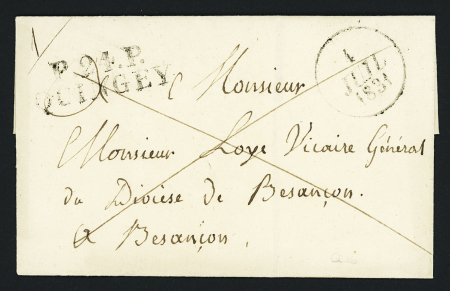 P. 24. P.
QUINGEY
4
JUIL
1831
Monsieur
Monsieur Loye Vicaire Général
du Diocèse de Besançon.
a Besançon,